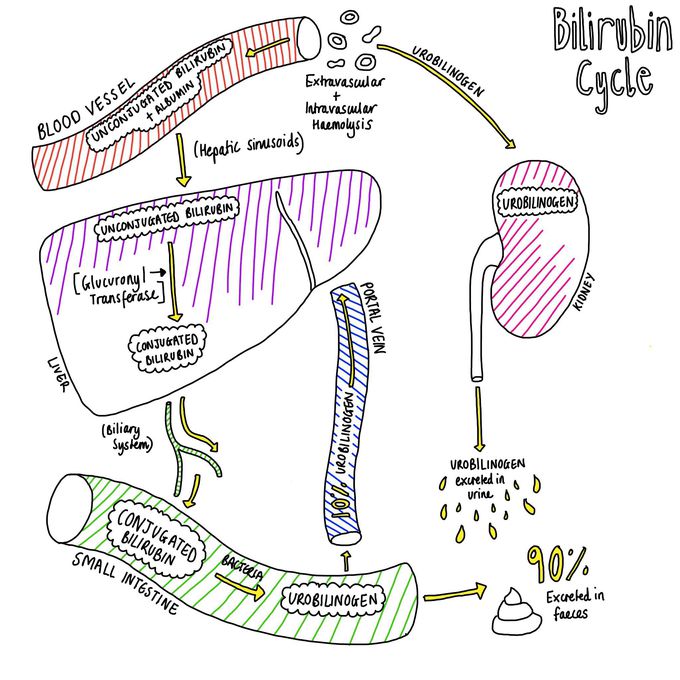 Bilirubin
Cycle
BLOOD VESSEL
UNCONJUGATED BILIRUBIN
+ ALBUMIN
Extravascular
+
Intravascular
Haemolysis
UROBILINOGEN
(Hepatic sinusoids)
UNCONJUGATED BILIRUBIN
[Glucuronyl
Transferase]
CONJUGATED
BILIRUBIN
LIVER
UROBILINOGEN
KIDNEY
PORTAL VEIN
10% UROBILINOGEN
(Biliary
System)
UROBILINOGEN
excreted in
urine
CONJUGATED
BILIRUBIN
BACTERIA
UROBILINOGEN
SMALL INTESTINE
90%
Excreted in
faeces